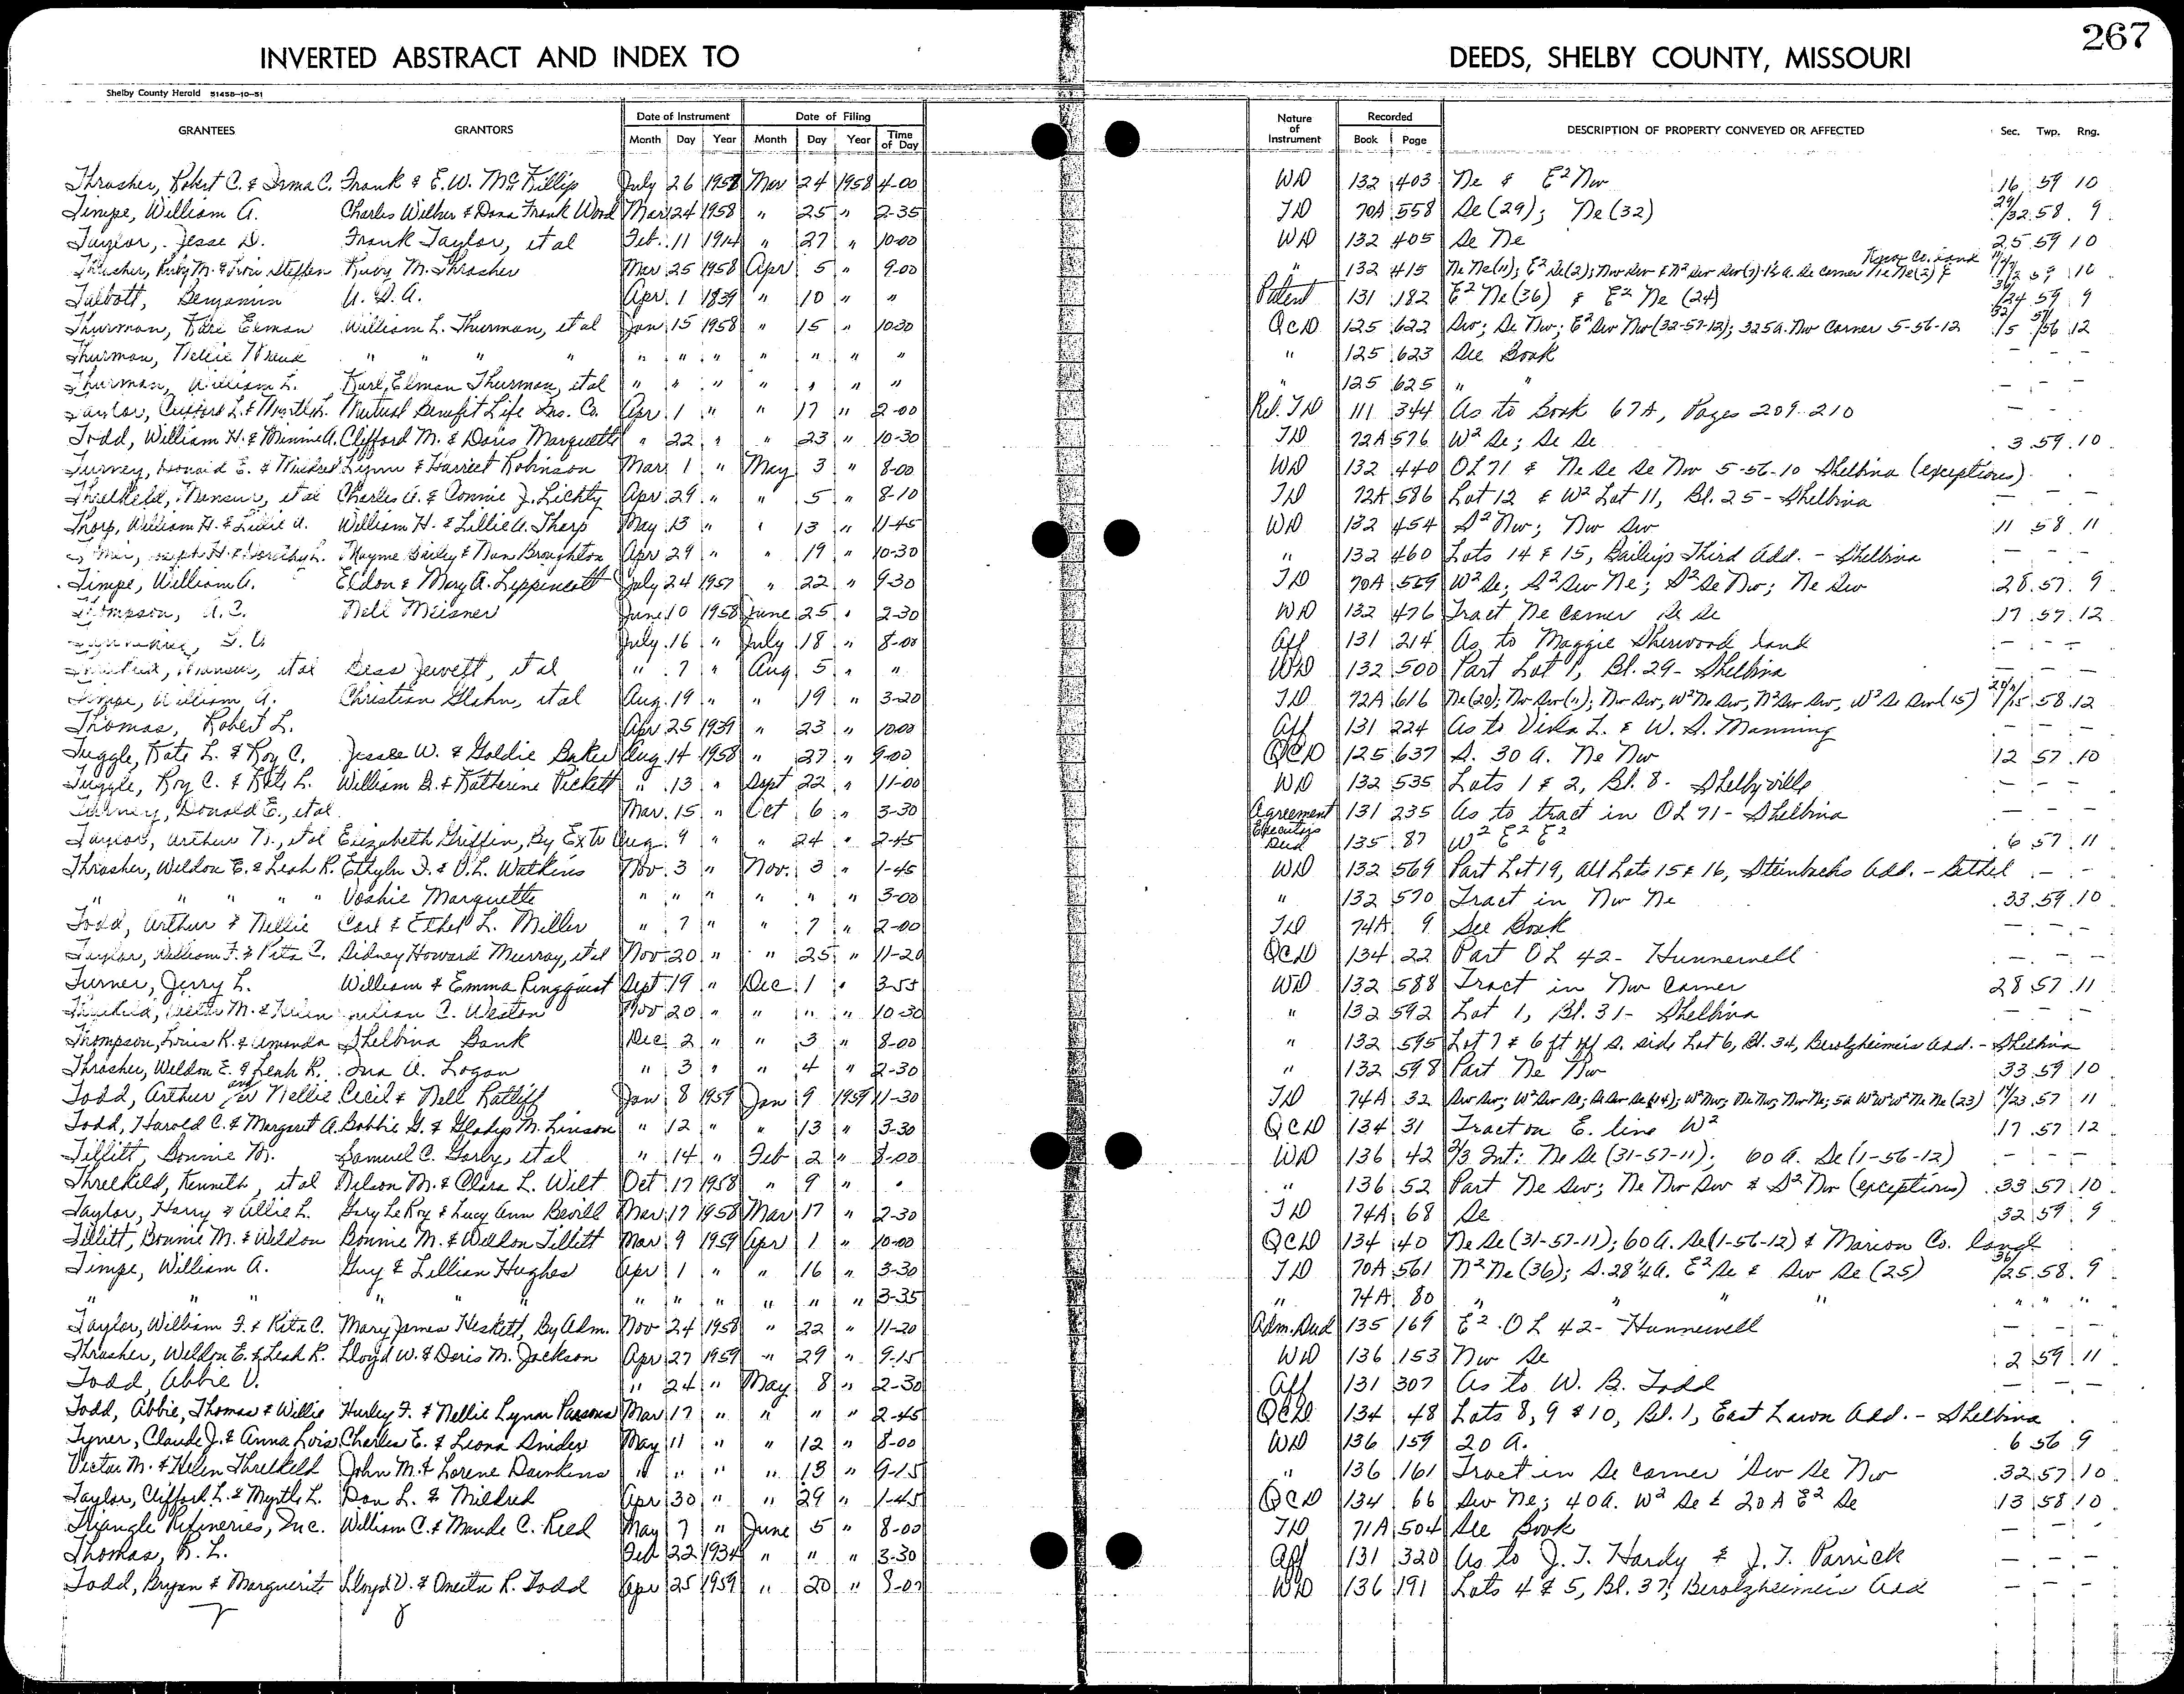 267
INVERTED ABSTRACT AND INDEX TO DEEDS, SHELBY COUNTY, MISSOURI
Shelby County Herald 51458-10-51
GRANTEES GRANTORS Date of Instrument Date of Filing Nature of Instrument Recorded DESCRIPTION OF PROPERTY CONVEYED OR AFFECTED Sec. Twp. Rng.
Month Day Year Month Day Year Time of Day Book Page
Thrasher, Robert C. & Irma C. Frank & E. W. McKillip July 26 1958 Mar 24 1958 4-00 WD 132 403 Ne & E² Nw 16 59 10
Timpe, William A. Charles Wilbur & Dana Frank Wood Mar 24 1958 " 25 " 2-35 TD 70A 558 Se (29); Ne (32) 29/32 58 9
Taylor, Jesse D. Frank Taylor, et al Feb. 11 1914 " 27 " 10-00 WD 132 405 Se Ne 25 59 10
Thrasher, Ruby M. & Stephen Ruby M. Thrasher Mar 25 1958 Apr 5 " 9-00 " 132 415 Ne Ne (11); E² Se (2); Nw Sw & N² Sw Sw (1) A. Se Corner Ne (2) & Knox Co. Land 59 10
Talbott, Benjamin U.S.A. Apr. 1 1839 " 10 " " Patent 131 182 E² Ne (36) & E² Ne (24) 36/24 59 9
Thurman, Karl Elman William L. Thurman, et al Jan 15 1958 " 15 " 10-30 QCD 125 622 Sw; Se Nw; E² Sw Nw (32-57-12); 325 A. Nw Corner 5-56-12 32/5 57/56 12
Thurman, Nellie " " " " " " " " " " " " 125 623 See Book - - -
Thurman, William L. Karl Elman Thurman, et al " " " " " " " " 125 625 " " - - -
Taylor, Clifford L. & Myrtle L. Mutual Benefit Life Ins. Co. Apr 1 " " 17 " 2-00 Rel. TD 111 344 As to Book 67A, Pages 209-210 - - -
Todd, William H. & Minnie A. Clifford M. & Doris Marquette " 22 " " 23 " 10-30 TD 72A 576 W² Se; Se Se 3 59 10
Turney, Donald E. & Mildred Lynn & Harriet Robinson Mar. 1 " May 3 " 8-00 WD 132 440 OL 71 & Ne Se Se Nw 5-56-10 Shelbina (exceptions) - - -
Threlkeld, et al Charles A. & Connie J. Lichty Apr 29 " " 5 " 8-10 TD 72A 586 Lot 12 & W² Lot 11, Bl. 25 - Shelbina - - -
Thorp, William H. & Lillie A. William H. & Lillie A. Tharp May 13 " " 13 " 11-45 WD 132 454 S² Nw; Nw Sw 11 58 11
Joseph H. & Dorothy L. Mayme Bailey & Nan Broughton Apr 29 " " 19 " 10-30 " 132 460 Lots 14 & 15, Bailey's Third Add. - Shelbina - - -
Timpe, William A. Eldon & Mary A. Lippincott July 24 1957 " 22 " 9-30 TD 70A 559 W² Se; S² Sw Ne; S² Se Nw; Ne Sw 28 57 9
Thompson, A.C. Nell Meisner June 10 1958 June 25 " 2-30 WD 132 476 Tract Ne Corner Se Se 17 57 12
July 16 " July 18 " 8-00 Aff 131 214 As to Maggie Sherwood land - - -
et al Bess Jewett, et al " 7 " Aug 5 " " WD 132 500 Part Lot 1, Bl. 29 - Shelbina - - -
Timpe, William A. Christian Glahn, et al Aug. 19 " " 19 " 3-20 TD 72A 616 Ne (20); Nw Sw (11); Nw Sw, W² Ne Sw, N² Sw Sw, W² Se Sw (15) 58 12
Thomas, Robert L. Apr 25 1939 " 23 " 10-00 Aff 131 224 As to Virka L. & W. S. Manning - - -
Tuggle, Kate L. & Roy C. Jessee W. & Goldie Baker Aug. 14 1958 " 27 " 9-00 QCD 125 637 S. 30 A. Ne Nw 12 57 10
Tuggle, Roy C. & Kate L. William B. & Katherine Pickett " 13 " Sept 22 " 11-00 WD 132 535 Lots 1 & 2, Bl. 8 - Shelbyville - - -
Turney, Donald E., et al Mar. 15 " Oct 6 " 3-30 Agreement 131 235 As to tract in OL 71 - Shelbina - - -
Taylor, Arthur N., et al Elizabeth Griffin, By Ex'tr Aug. 9 " " 24 " 2-45 Executor's Deed 135 87 W² E² E² 6 57 11
Thrasher, Weldon E. & Leah R. Ethyln F. & O.L. Watkins Nov 3 " Nov. 3 " 1-45 WD 132 569 Part Lot 19, All Lots 15 & 16, Steinbach's Add. - Bethel - - -
" " " " Voshie Marquette " " " " " " 3-00 " 132 570 Tract in Nw Ne 33 59 10
Todd, Arthur & Nellie Carl & Ethel L. Miller " 7 " " 7 " 2-00 TD 74A 9 See Book - - -
Taylor, William F. & Rita C. Sidney Howard Murray, et al Nov 20 " " 25 " 11-20 QCD 134 22 Part OL 42 - Hunnewell - - -
Turner, Jerry L. William & Emma Ringquist Sept 19 " Dec. 1 " 3-55 WD 132 588 Tract in Nw Corner 28 57 11
Threlkeld, M. & Helen C. Weston Nov 20 " " " " 10-30 " 132 592 Lot 1, Bl. 31 - Shelbina - - -
Thompson, Louis K. & Amanda Shelbina Bank Dec. 2 " " 3 " 8-00 " 132 595 Lot 7 & 6 ft off S. side Lot 6, Bl. 34, Berolzheimer's Add. - Shelbina
Thrasher, Weldon E. & Leah R. Ina A. Logan " 3 " " 4 " 2-30 " 132 598 Part Ne Nw 33 59 10
Todd, Arthur and/or Nellie Cecil & Nell Ratliff Jan 8 1959 Jan 9 1959 11-30 TD 74A 32 Sw Sw; W² Sw Se; Se Sw Se (14); W² Nw; Ne Nw; Nw Ne; 5A W² W² W² Ne Ne (23) 14/23 57 11
Todd, Harold C. & Margaret A. Bobbie G. & Gladys M. Linson " 12 " " 13 " 3-30 QCD 134 31 Tract on E. line W² 17 57 12
Tillitt, Bonnie M. Samuel C. Garby, et al " 14 " Feb 2 " 8-00 WD 136 42 2/3 Int: Ne Se (31-57-11); 60 A. Se (1-56-12) - - -
Threlkeld, Kenneth, et al Nelson M. & Clara L. Wilt Oct 17 1958 " 9 " " " 136 52 Part Ne Sw; Ne Nw Sw & S² Nw (exceptions) 33 57 10
Taylor, Harry & Allie L. Gary LeRoy & Lucy Ann Bevill Mar 17 1958 Mar 17 " 2-30 TD 74A 68 Se 32 59 9
Tillitt, Bonnie M. & Weldon Bonnie M. & Weldon Tillitt Mar 9 1959 Apr 1 " 10-00 QCD 134 40 Ne Se (31-57-11); 60 A. Se (1-56-12) & Marion Co. land
Timpe, William A. Guy & Lillian Hughes Apr 1 " " 16 " 3-30 TD 70A 561 N² Ne (36); S. 28¼ A. E² Se & Sw Se (25) 36/25 58 9
" " " " " " " " " " " " 3-35 " 74A 80 " " " " " " "
Taylor, William F. & Rita C. Mary James Heskett, By Adm. Nov 24 1958 " 22 " 11-20 Adm. Deed 135 169 E² OL 42 - Hunnewell - - -
Thrasher, Weldon E. & Leah R. Lloyd W. & Doris M. Jackson Apr 27 1959 " 29 " 9-15 WD 136 153 Nw Se 2 59 11
Todd, Abbie V. " 24 " May 8 " 2-30 Aff 131 307 As to W. B. Todd - - -
Todd, Abbie, Thomas & Willie Hurley F. & Nellie Lynn Parsons Mar 17 " " " " 2-45 QCD 134 48 Lots 8, 9 & 10, Bl. 1, East Lawn Add. - Shelbina
Tyner, Claude J. & Anna Lois Charles E. & Leona Snider May 11 " " 12 " 8-00 WD 136 159 20 A. 6 56 9
Victor M. & Helen Threlkeld John M. & Lorene Dawkins " " " " 13 " 9-15 " 136 161 Tract in Se Corner Sw Se Nw 32 57 10
Taylor, Clifford L. & Myrtle L. Don L. & Mildred Apr 30 " " 29 " 1-45 QCD 134 66 Sw Ne; 40 A. W² Se & 20 A E² Se 13 58 10
Triangle Refineries, Inc. William C. & Maude C. Reed May 7 " June 5 " 8-00 TD 71A 504 See Book - - -
Thomas, R. L. Feb 22 1934 " " " 3-30 Aff 131 320 As to J. T. Hardy & J. T. Parrick - - -
Todd, Bryan & Marguerite Lloyd V. & Oneita R. Todd Apr 25 1959 " 20 " 8-00 WD 136 191 Lots 4 & 5, Bl. 37, Berolzheimer's Add - - -